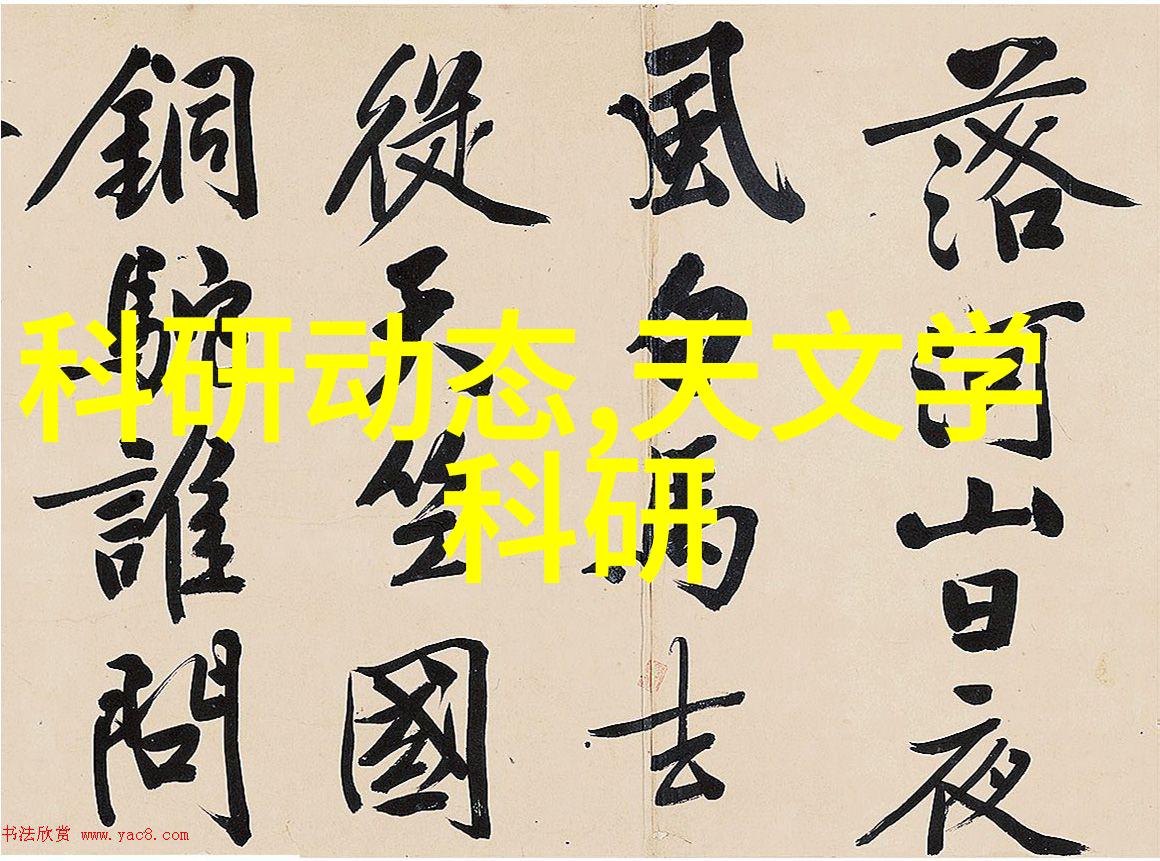 落河山日夜
風白馬去
從天竺國
銅駝誰問
科研动态,天文学
科研
书法欣赏 www.yac8.com